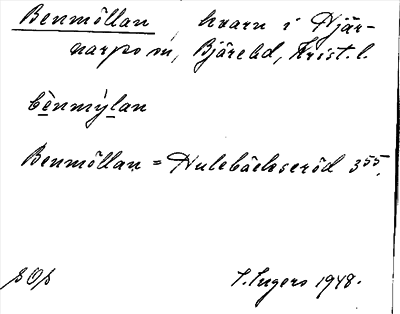 Benmöllan, kvarn i Hjär-
narps sn, Bjäre hd, Krist. l.
bènmỳlan
Benmöllan = Hulebäckseröd 3⁵⁵.
SOS I. Ingers 1948.